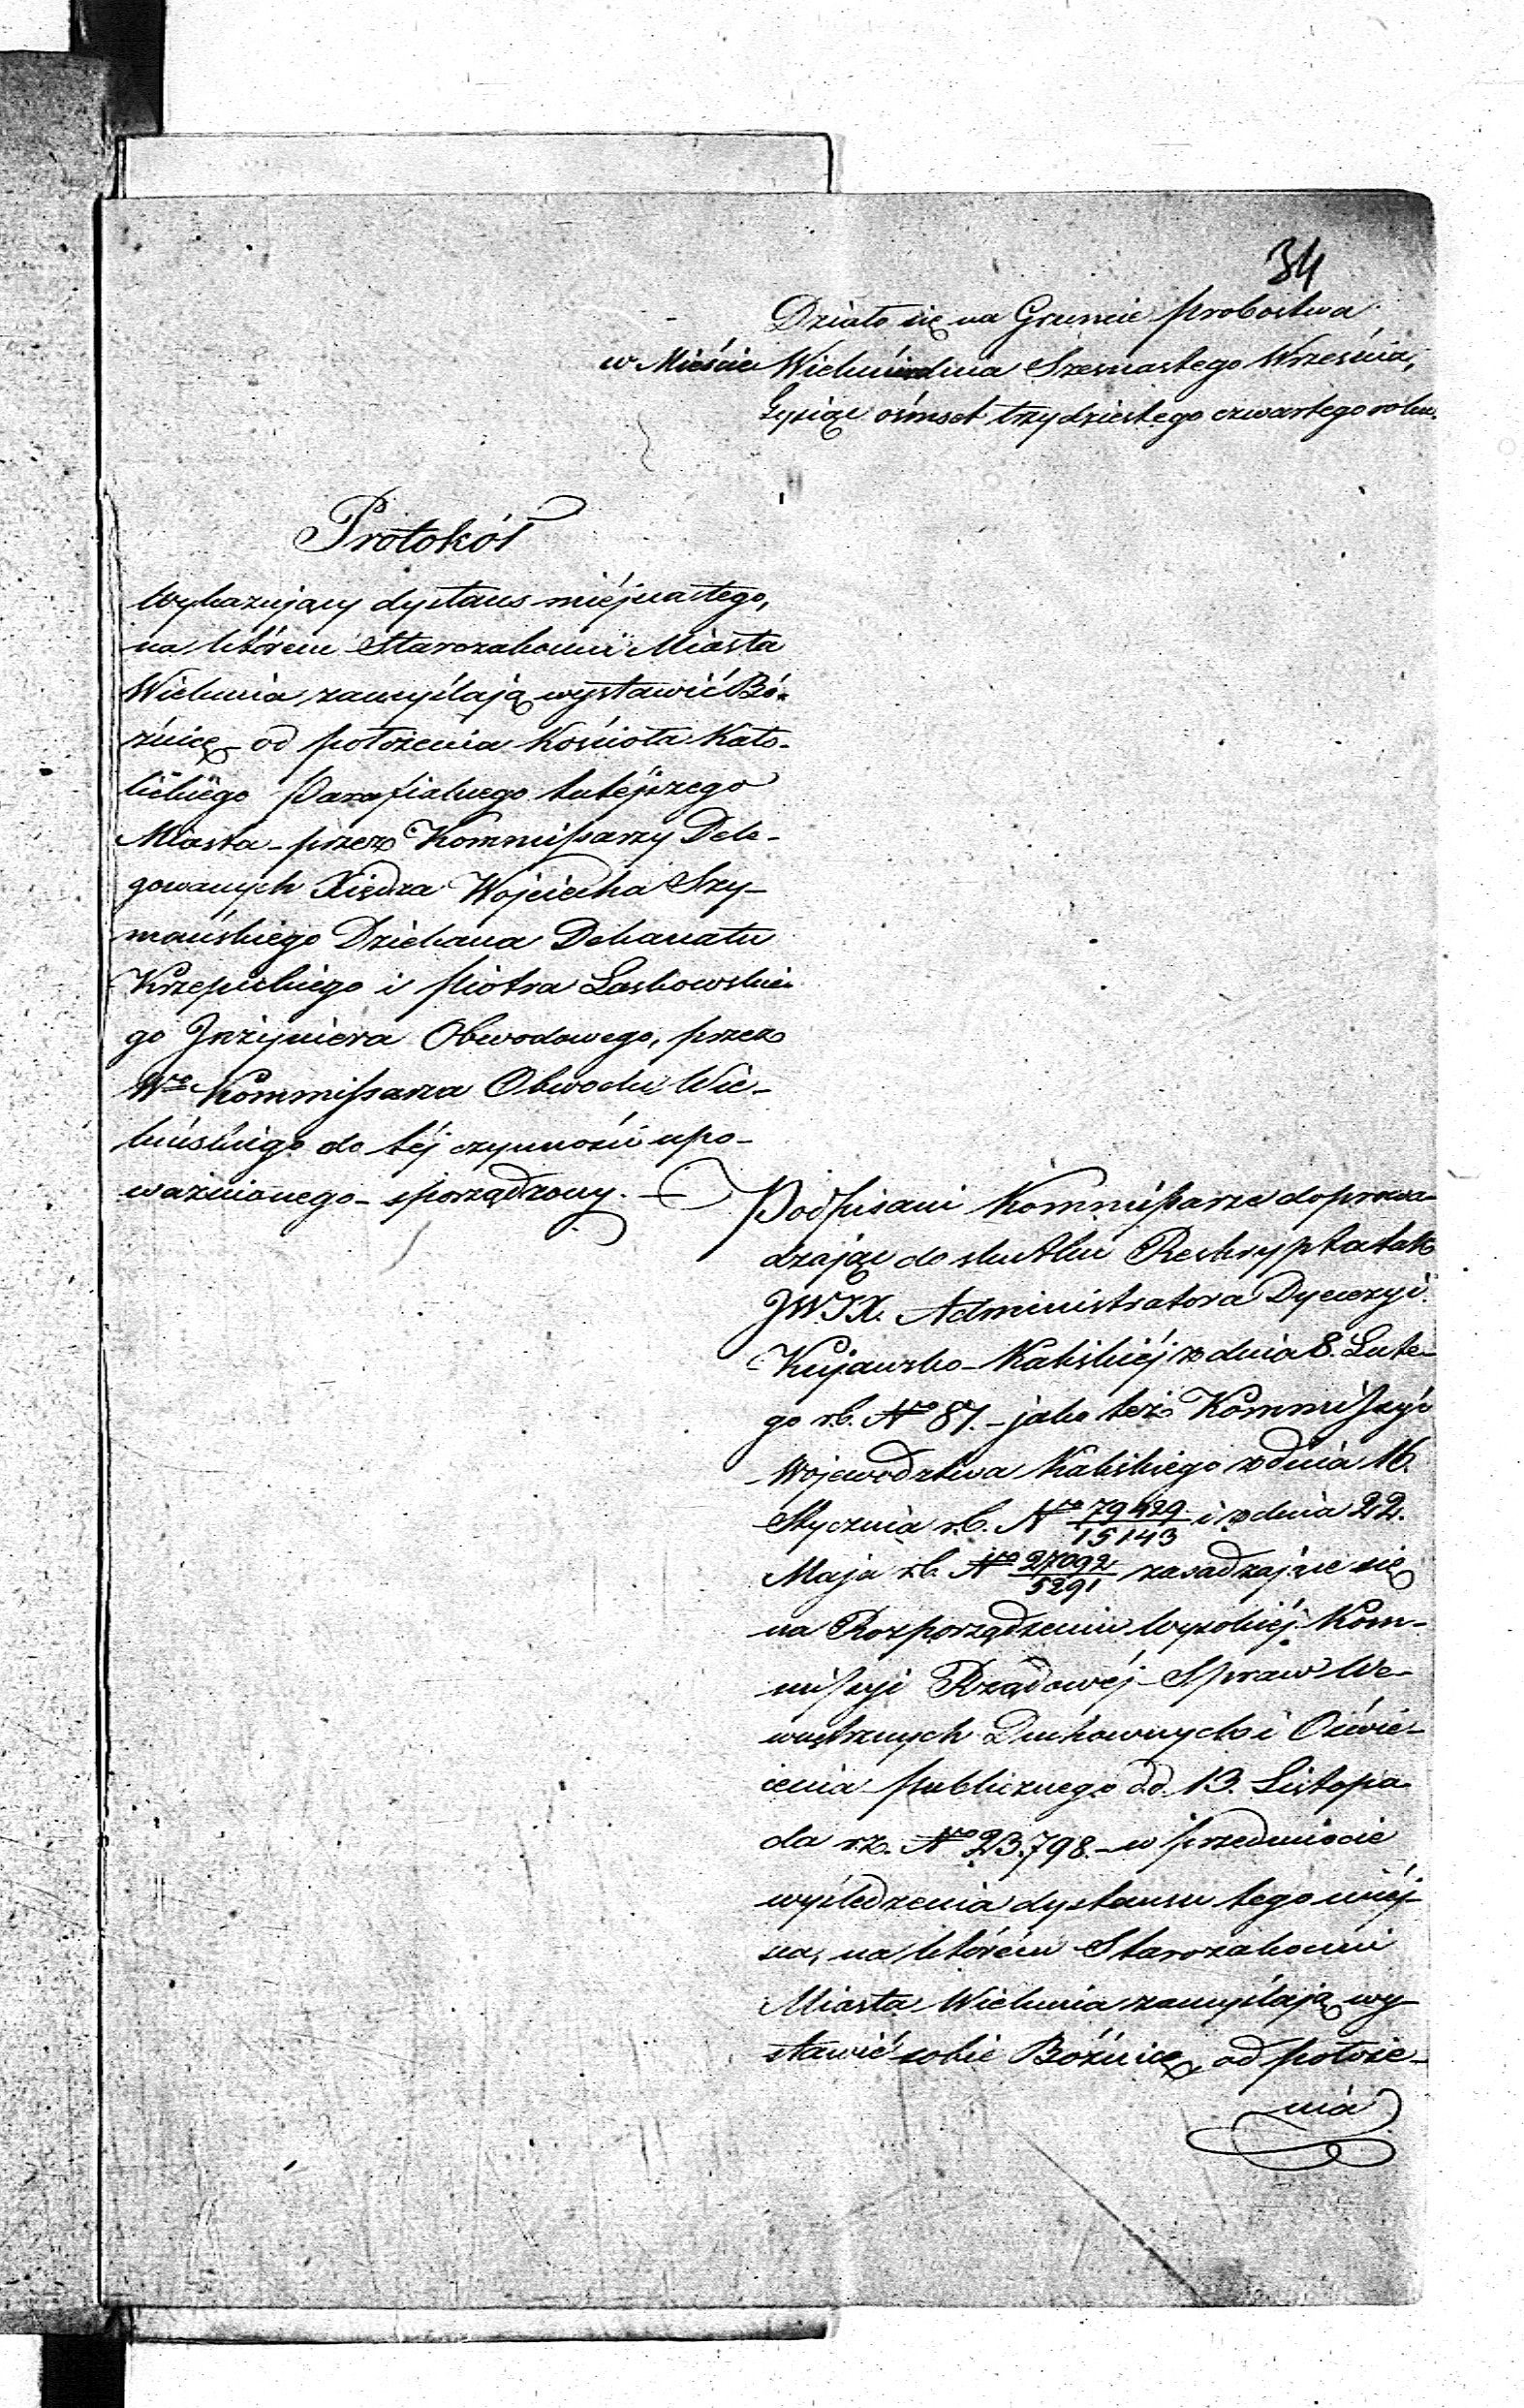 34
Działo się na Gruncie probostwa
w Mieście Wieluniu dnia Szesnastego Września,
Tysiąc ośmset trzydziestego czwartego roku.
Protokół
Wykazujący dystans miéjsca tego,
na którem Starozakonni Miasta
Wielunia zamyślają wystawić Bó-
żnicę - od położenia Kościoła Kato-
lickiego Parafialnego tutéjszego
Miasta - przez Kommissarzy Dele-
gowanych Xiędza Wojciecha Szy-
mańskiego Dziekana Dekanatu
Krzepickiego i Piotra Laskowskie-
go Inżyniera Obwodowego, przez
Wo Kommissarza Obwodu Wie-
luńskiego do téj czynności upo-
ważnionego - sporządzony. -
Podpisani Kommissarze doprowa-
dzając do skutku Reskrypta tak
JWJX. Administratora Dyecezyi
Kujawsko-Kaliskiéj z dnia 8. Lute-
go r.b. No 87. - jako też Kommissyi
Województwa Kaliskiego z dnia 16.
Stycznia r.b. No 79429/15143 i z dnia 22.
Maja r.b. No 27092/5291 zasadzające się
na Rozporządzeniu Wysokiéj Kom-
missyi Rządowéj Spraw We-
wnętrznych Duchownych i Oświe-
cenia publicznego d.d. 13. Listopa-
da r.z. No 23,798. - w przedmiocie
wyśledzenia dystansu tego miéj-
sca, na którém Starozakonni
Miasta Wielunia zamyślają wy-
stawić sobie Bóżnicę, od położe-
nia